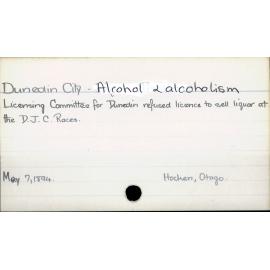 Dunedin City - Alcohol & alcoholism
Licensing Committee for Dunedin refused licence to sell liquor at
the D.J.C. Races.
May 7, 1894.
Hocken, Otago.